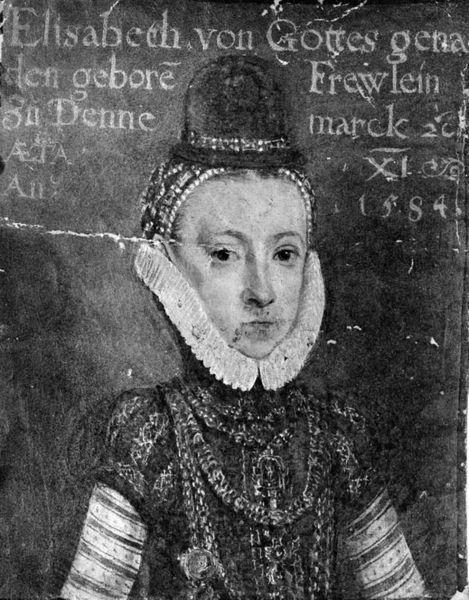 Elisabeth von Gottes gena
den geborē Frewlein
Zu Denne marck ꝛc
ÆTA XI
An° 1584.